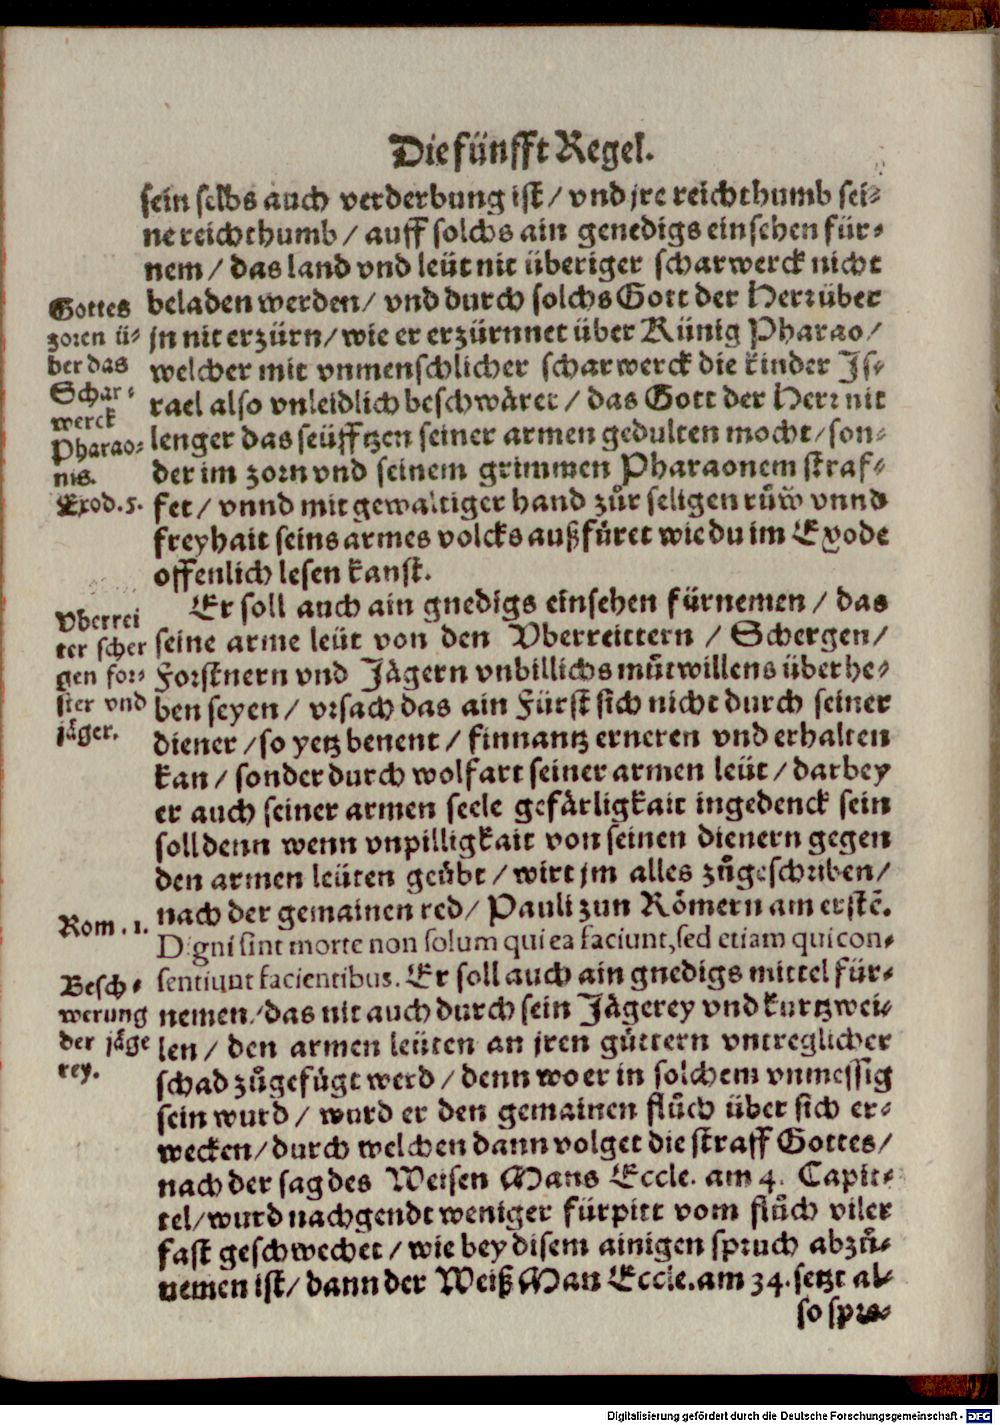 Die fünfft Regel.
sein selbs auch verderbung ist / vnd jre reichthumb sei⸗
ne reichthumb / auff solchs ain genedigs einsehen für⸗
nem / das land vnd leüt nit überiger scharwerck nicht
beladen werden / vnd durch solchs Gott der Herr über
jn nit erzürn / wie er erzürnnet über Künig Pharao /
welcher mit vnmenschlicher scharwerck die kinder Js⸗
rael also vnleidlich beschwäret / das Gott der Herr nit
lenger das seüfftzen seiner armen gedulten mocht / son⸗
der im zorn vnd seinem grimmen Pharaonem straf⸗
fet / vnnd mit gewaltiger hand zůr seligen růw vnnd
freyhait seins armes volcks außfüret wie du im Exode
offenlich lesen kanst.
Gottes
zoren ü⸗
ber das
Schar⸗
werck
Pharao⸗
nis.
Exod. 5.
Er soll auch ain gnedigs einsehen fürnemen / das
seine arme leüt von den Vberreittern / Schergen /
Forstnern vnd Jägern vnbillichs můtwillens überhe⸗
ben seyen / vrsach das ain Fürst sich nicht durch seiner
diener / so yetz benent / finnantz erneren vnd erhalten
kan / sonder durch wolfart seiner armen leüt / darbey
er auch seiner armen seele gefärligkait ingedenck sein
soll denn wenn vnpilligkait von seinen dienern gegen
den armen leüten geübt / wirt jm alles zůgeschriben /
nach der gemainen red / Pauli zun Römern am erstē.
Digni sint morte non solum qui ea faciunt, sed etiam qui con⸗
sentiunt facientibus. Er soll auch ain gnedigs mittel für⸗
nemen / das nit auch durch sein Jägerey vnd kurtzwei⸗
len / den armen leüten an jren güttern vntreglicher
schad zůgefügt werd / denn wo er in solchem vnmessig
sein wurd / wurd er den gemainen flůch über sich er⸗
wecken / durch welchen dann volget die straff Gottes /
nach der sag des Weisen Mans Eccle. am 4. Capit⸗
tel / wurd nachgendt weniger fürpitt vom flůch viler
fast geschwechet / wie bey disem ainigen spruch abzů⸗
nemen ist / dann der Weiß Man Eccle. am 34. setzt al⸗
so spre⸗
Vberrei
ter scher
gen for⸗
ster vnd
jäger.
Rom. 1.
Besch⸗
werung
der jäge
rey.
Digitalisierung gefördert durch die Deutsche Forschungsgemeinschaft - DFG